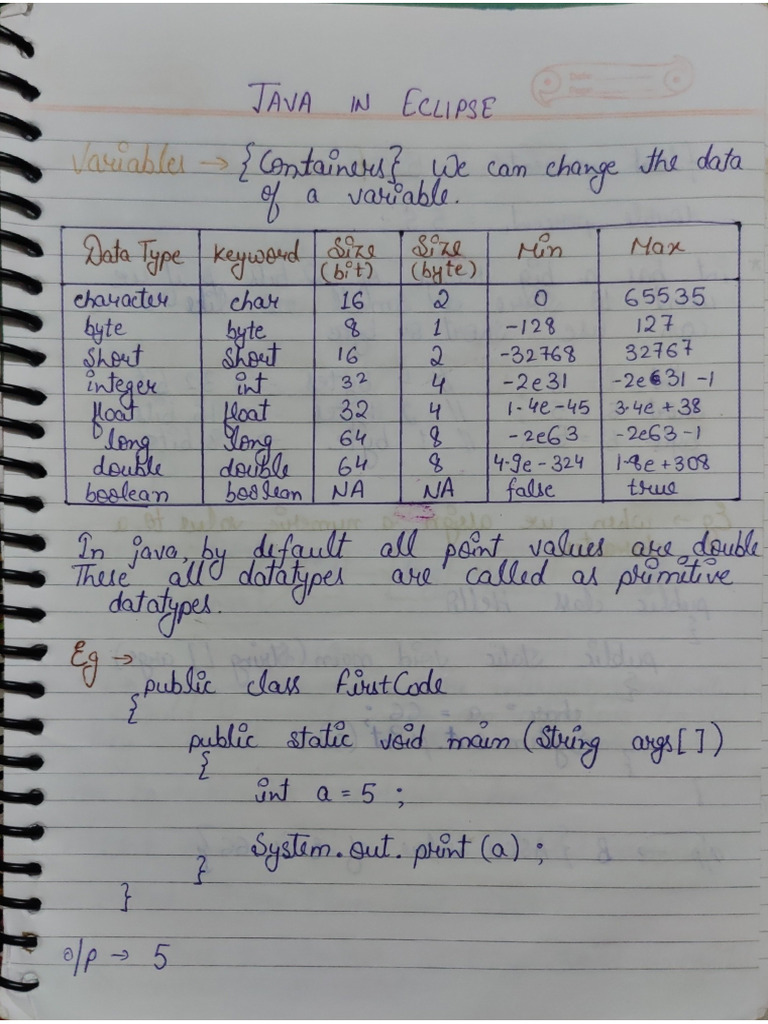 JAVA IN ECLIPSE
Variables → {Containers} We can change the data
of a variable.
Data Type Keyword Size (bit) Size (byte) Min Max
character char 16 2 0 65535
byte byte 8 1 -128 127
short short 16 2 -32768 32767
integer int 32 4 -2e31 -2e31 -1
float float 32 4 1.4e-45 3.4e+38
long long 64 8 -2e63 -2e63-1
double double 64 8 4.9e-324 1.8e+308
boolean boolean NA NA false true
In java, by default all point values are double
These all datatypes are called as primitive
datatypes.
Eg →
public class FirstCode
{
public static void main (String args[])
{
int a = 5 ;
System.out.print (a) ;
}
}
o/p → 5